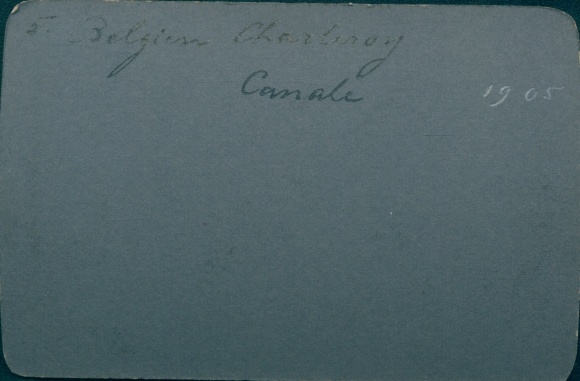 5. Belgien Charleroy
Canale 1905